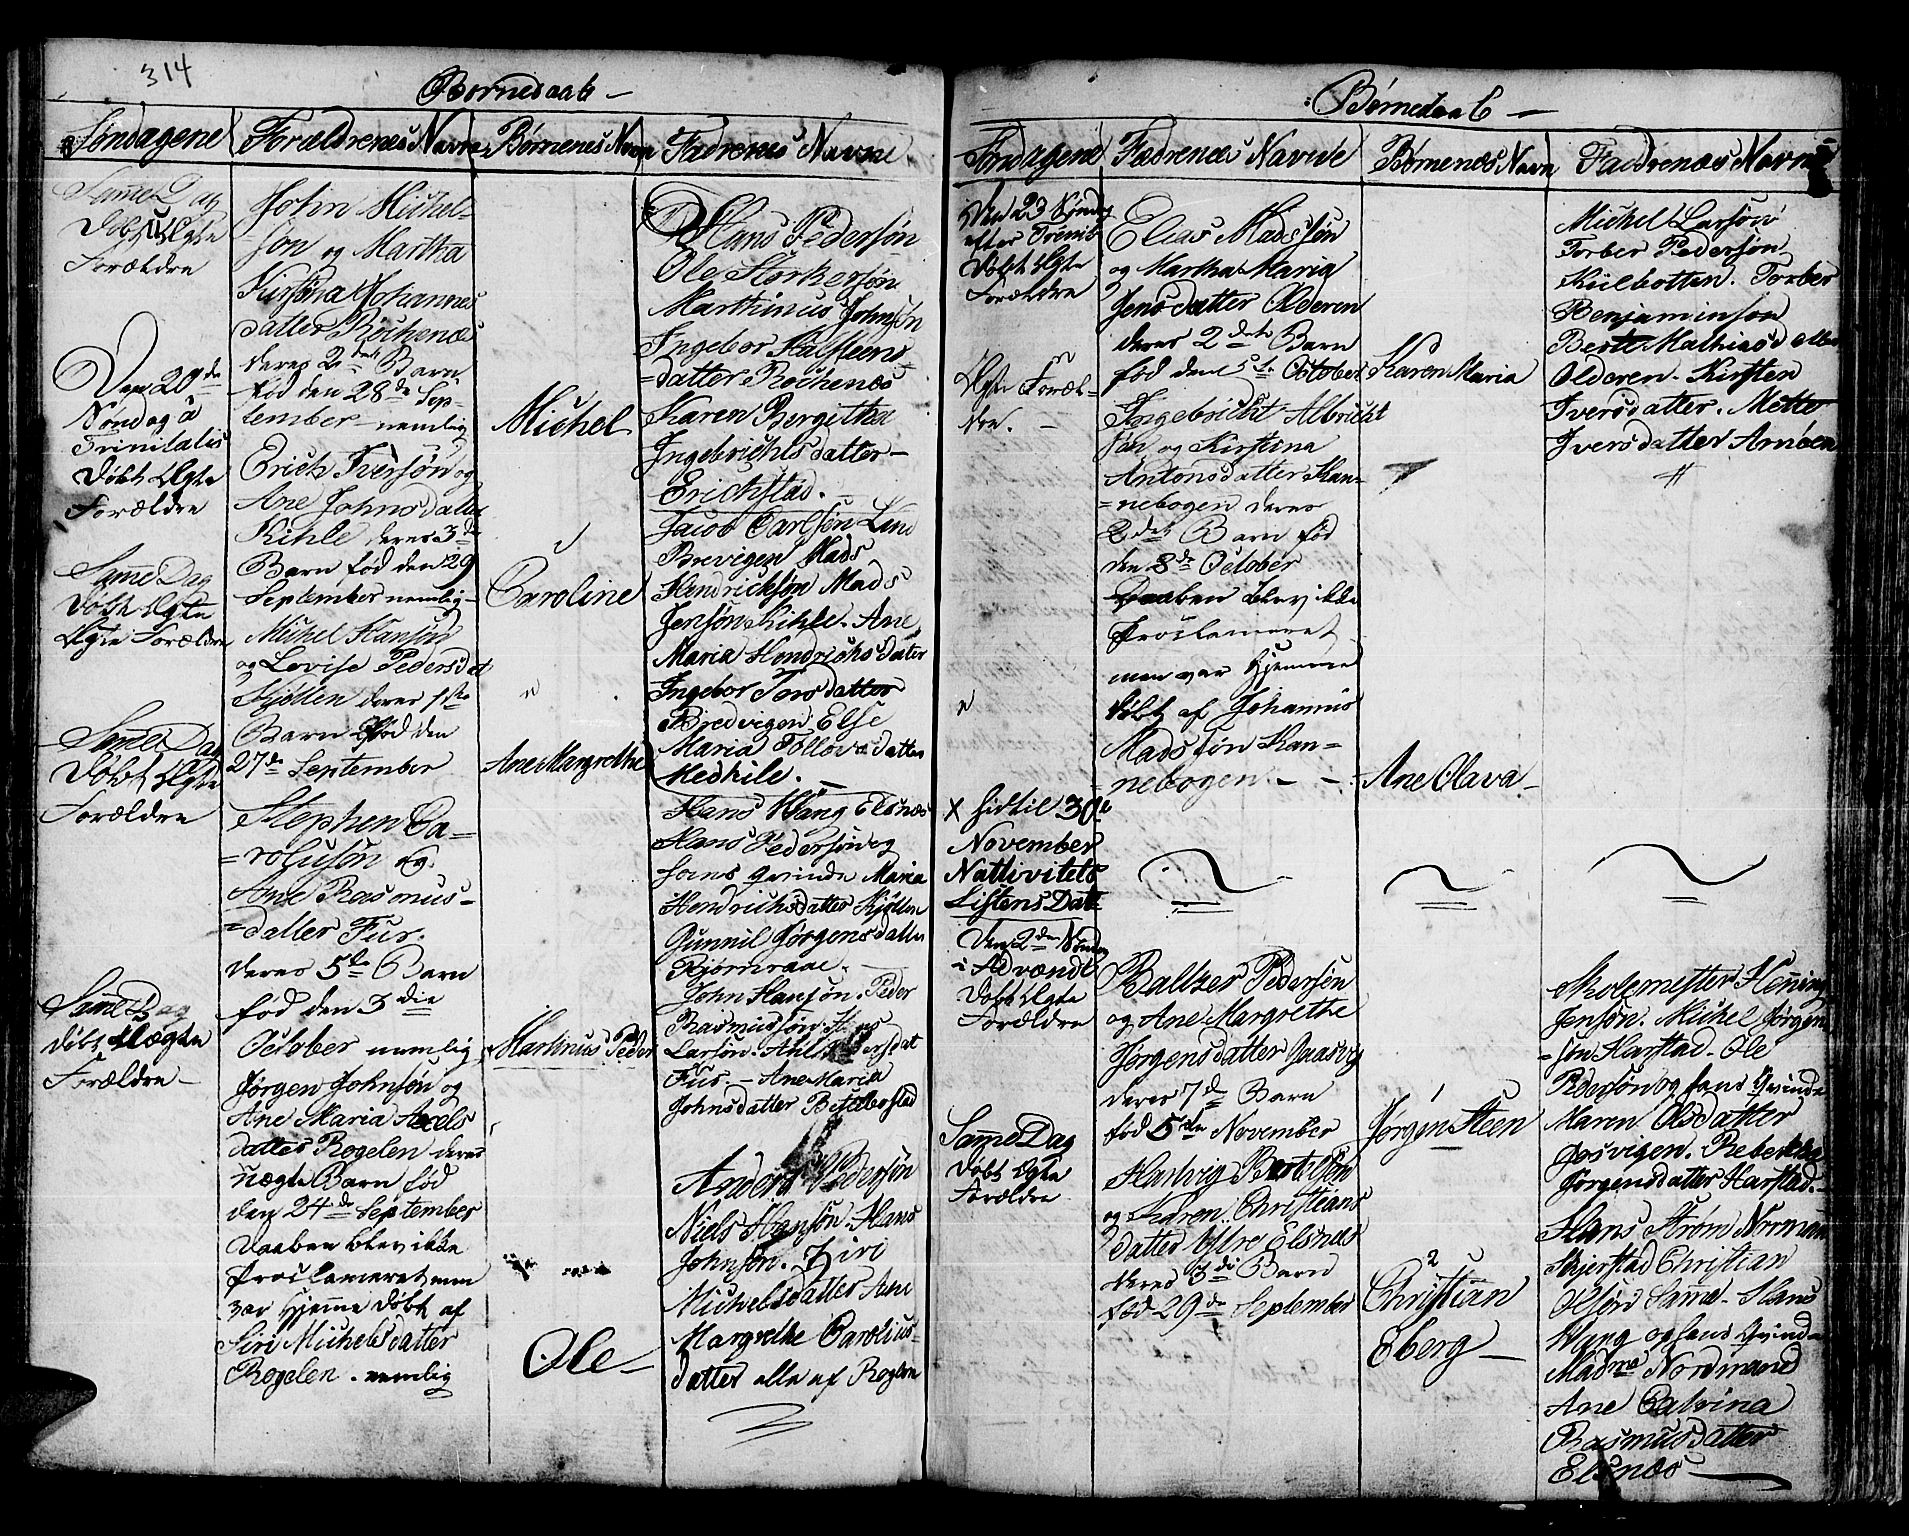 314
Børnedaab
Søndagene
Forældrenes Navne
Børnenes Navn
Fadrenes Navne
Samme Dag
Døbt Ægte
Forældre
John Michel-
søn og Martha
Kirstina Johannes
datter Rochenæs
deres 2det Barn
fød den 28de Sep-
tember nemlig
Michel
Hans Pedersøn
Ole Storkersøn
Marthinus Johnsøn
Ingebor Halsteens
=datter Rochenæs
Karen Bergitha
Ingebrichtsdatter-
Erichstad.
Den 20de
Søndag a
Trinitatis
Døbt Ægte
Forældre
Erich Iversøn og
Ane Johnsdatter
Kihle deres 3de
Barn fød den 29
September nemlig
Caroline
Jacob Carlsøn Lind
Brevigen Mads
Hendrichsøn Mads
Jensøn Kihle. Ane
Maria Hendrichsdatter
Ingebor Torsdatter
Bredvigen Else
Maria Tollovsdatter
Medkile.
Samme Dag
Døbt Ægte
Ægte Forældre
Michel Hansøn
og Lovise Pedersdat
Kjøtten deres 1ste
Barn fød den
27de September
Ane Margrethe
Hans Wang Elsnæs
Hans Pedersøn og
hans Qvinde Maria
Hendrichsdatter Kjøtten
Gunnil Jørgensdatter
Bjørnraae.
Samme Dag
Døbt Ægte
Forældre
Stephen Ca=
=rolusøn og
Ane Rasmus=
=datter Fur.
deres 5de Barn
fød den 3die
October nemlig
Martinus Peder
John Hansøn. Peder
Rasmussøn.
Larsøn. Pedersdat
Fur. - Ane Maria
Johnsdatter
Samme Dag
døbt Uægte
Forældre
Jørgen Johnsøn og
Ane Maria Axels
datter Rogelen deres
uægte Barn fød
den 24de September
Daaben blev ikke
Proclameret men
var Hjemme døbt af
Siri Michelsdatter
Rogelen. nemlig
Ole
Anders Pedersøn
Niels Hansøn. Hans
Johnsøn. Ziri
Michelsdatter Ane
Margrethe Carolius-
datter alle af Roglen
Børnedaab
Søndagene
Fædrenes Navne
Børnenes Navn
Faddrenes Navne
Den 23 Søndag
efter Trenit
Døbt Ægte
Forældre
Elias Madssøn
og Martha Maria
Jensdatter Olderen
deres 2det Barn
fød den 5te October
Karen Maria
Michel Larsøn
Torber Pedersøn
Kiilbotten. Torber
Benjaminsøn
Berte Mathiasdatter
Olderen. Kirsten
Iversdatter. Mette
Iversdatter Arnøen
Ægte Foræl-
dre.
Ingebricht Albricht
søn og Kirstina
Antonsdatter Kan=
=nebogen deres
2det Barn fød
den 8de October
Daaben blev ikke
Proclameret
men var Hjemme
døbt af Johannis
Madssøn Kan=
nebogen.
Ane Olava.
X hidtil 30te
November
Nattivitets
Listens Datt
Den 2den Sønda
i Advændt
Døbt Ægte
Forældre
Baltzer Pedersøn
og Ane Margrethe
Jørgensdatter Gaasvig
deres 7de Barn
fød 5te November
1
Jørgen Steen
Skolemester Henning
Jensøn. Michel Jørgen
=søn Harstad. Ole
Pedersøn og hans Qvinde
Maren Olsdatter
Josvigen. Rebekka
Jørgensdatter Harstad.
Samme Dag
Døbt Ægte
Forældre
Hartvig Bertelsøn
og Karen Christians
datter Ystre Elsnæs
deres 3die Barn
fød 29de September
2
Christian
Eberg
Hans Strøm Normann
Skjerstad Christian
Olsøn Samme. Hans
Wang og hans Qvinde
Madme Nordmand
Ane Calvina
Rasmusdatter
Elsnæs